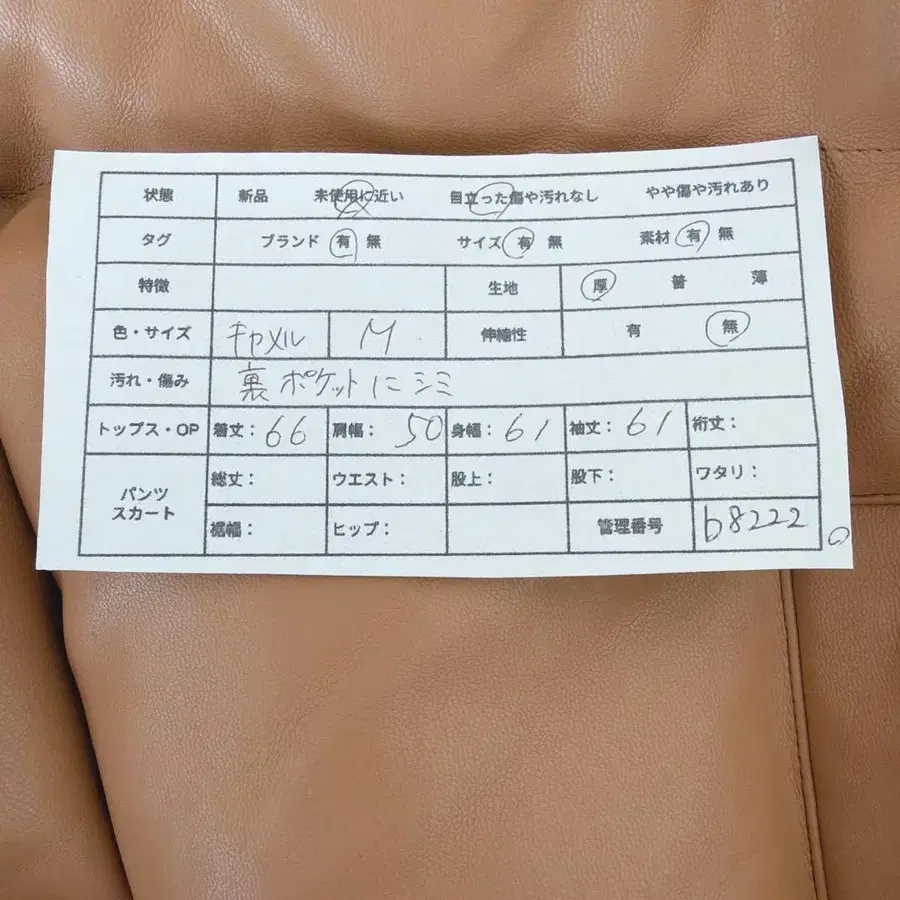 状態 新品 未使用に近い 目立った傷や汚れなし やや傷や汚れあり
タグ ブランド 有 無 サイズ 有 無 素材 有 無
特徴 生地 厚 普 薄
色・サイズ キャメル M 伸縮性 有 無
汚れ・傷み 裏ポケットにシミ
トップス・OP 着丈：66 肩幅：50 身幅：61 袖丈：61 裄丈：
パンツ 総丈： ウエスト： 股上： 股下： ワタリ：
スカート 裾幅： ヒップ： 管理番号 b8222